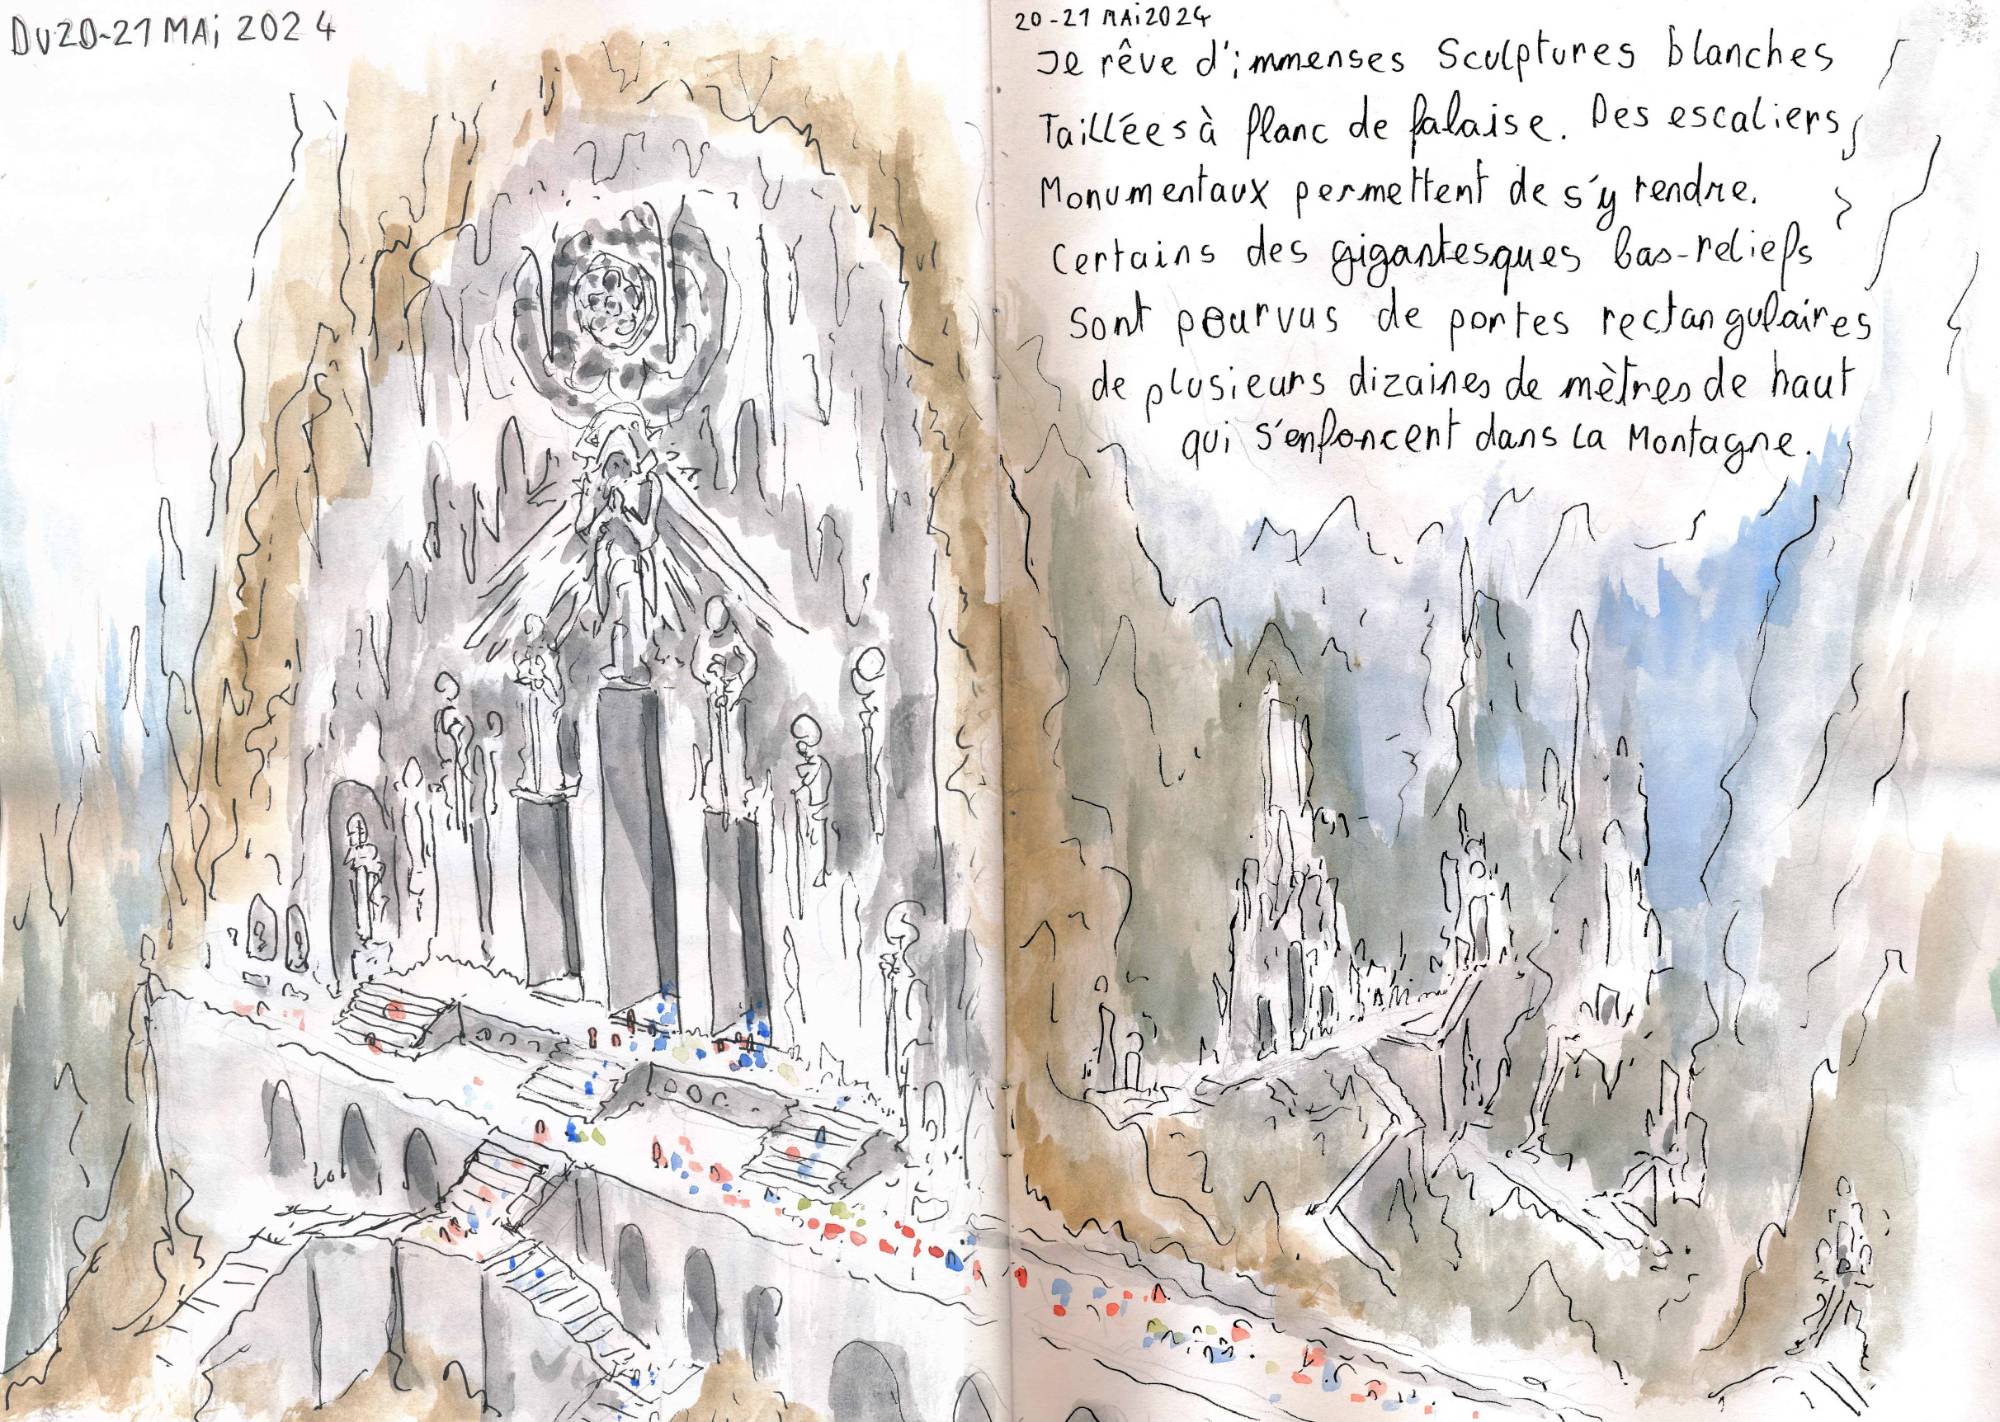 DU 20-21 MAi 2024
20-21 MAi 2024
Je rêve d'immenses Sculptures blanches
Taillées à flanc de falaise. Des escaliers
Monumentaux permettent de s'y rendre.
Certains des gigantesques bas-reliefs
Sont pourvus de portes rectangulaires
de plusieurs dizaines de mètres de haut
qui s'enfoncent dans La Montagne.